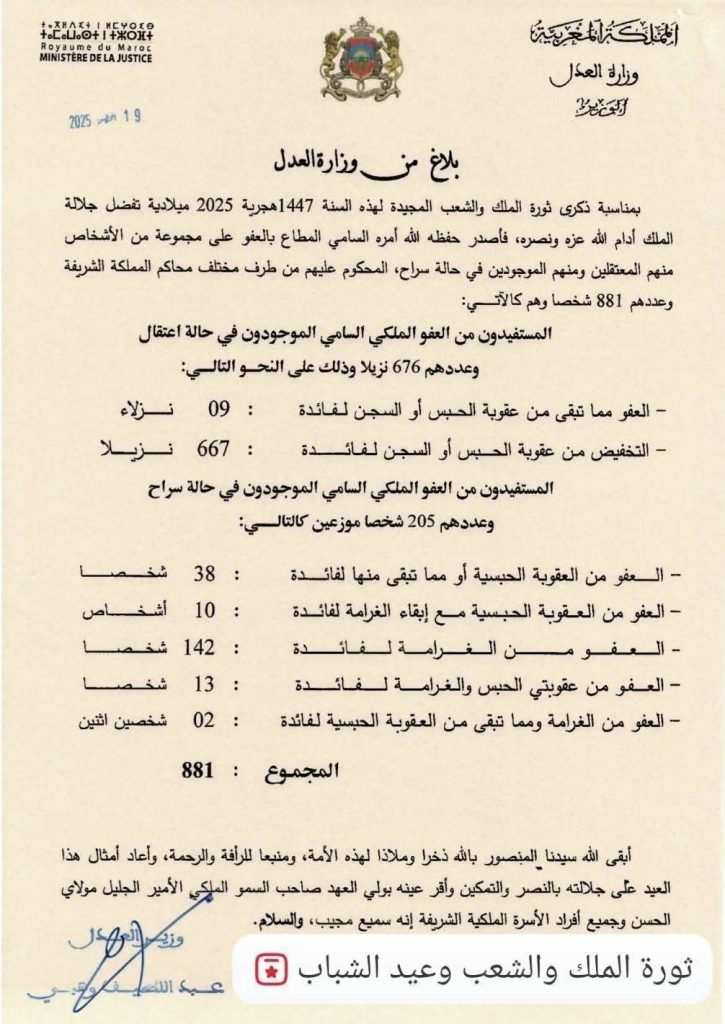 ⵜⴰⴳⵍⴷⵉⵜ ⵏ ⵍⵎⵖⵔⵉⴱ
Royaume du Maroc
MINISTÈRE DE LA JUSTICE
المملكة المغربية
وزارة العدل
الوزير
19 2025
بلاغ من وزارة العدل
بمناسبة ذكرى ثورة الملك والشعب المجيدة لهذه السنة 1447هجرية 2025 ميلادية تفضل جلالة
الملك أدام الله عزه ونصره، فأصدر حفظه الله أمره السامي المطاع بالعفو على مجموعة من الأشخاص
منهم المعتقلين ومنهم الموجودين في حالة سراح، المحكوم عليهم من طرف مختلف محاكم المملكة الشريفة
وعددهم 881 شخصا وهم كالآتي:
المستفيدون من العفو الملكي السامي الموجودون في حالة اعتقال
وعددهم 676 نزيلا وذلك على النحو التالي:
- العفو مما تبقى من عقوبة الحبس أو السجن لفائدة : 09 نزلاء
- التخفيض من عقوبة الحبس أو السجن لفائدة : 667 نزيلا
المستفيدون من العفو الملكي السامي الموجودون في حالة سراح
وعددهم 205 شخصا موزعين كالتالي:
- العفو من العقوبة الحبسية أو مما تبقى منها لفائدة : 38 شخصا
- العفو من العقوبة الحبسية مع إبقاء الغرامة لفائدة : 10 أشخاص
- العفو من الغرامة لفائدة : 142 شخصا
- العفو من عقوبتي الحبس والغرامة لفائدة : 13 شخصا
- العفو من الغرامة ومما تبقى من العقوبة الحبسية لفائدة : 02 شخصين اثنين
المجموع : 881
أبقى الله سيدنا المنصور بالله ذخرا وملاذا لهذه الأمة، ومنبعا للرأفة والرحمة، وأعاد أمثال هذا
العيد على جلالته بالنصر والتمكين وأقر عينه بولي العهد صاحب السمو الملكي الأمير الجليل مولاي
الحسن وجميع أفراد الأسرة الملكية الشريفة إنه سميع مجيب، والسلام.
وزير العدل
عبد اللطيف وهبي
ثورة الملك والشعب وعيد الشباب